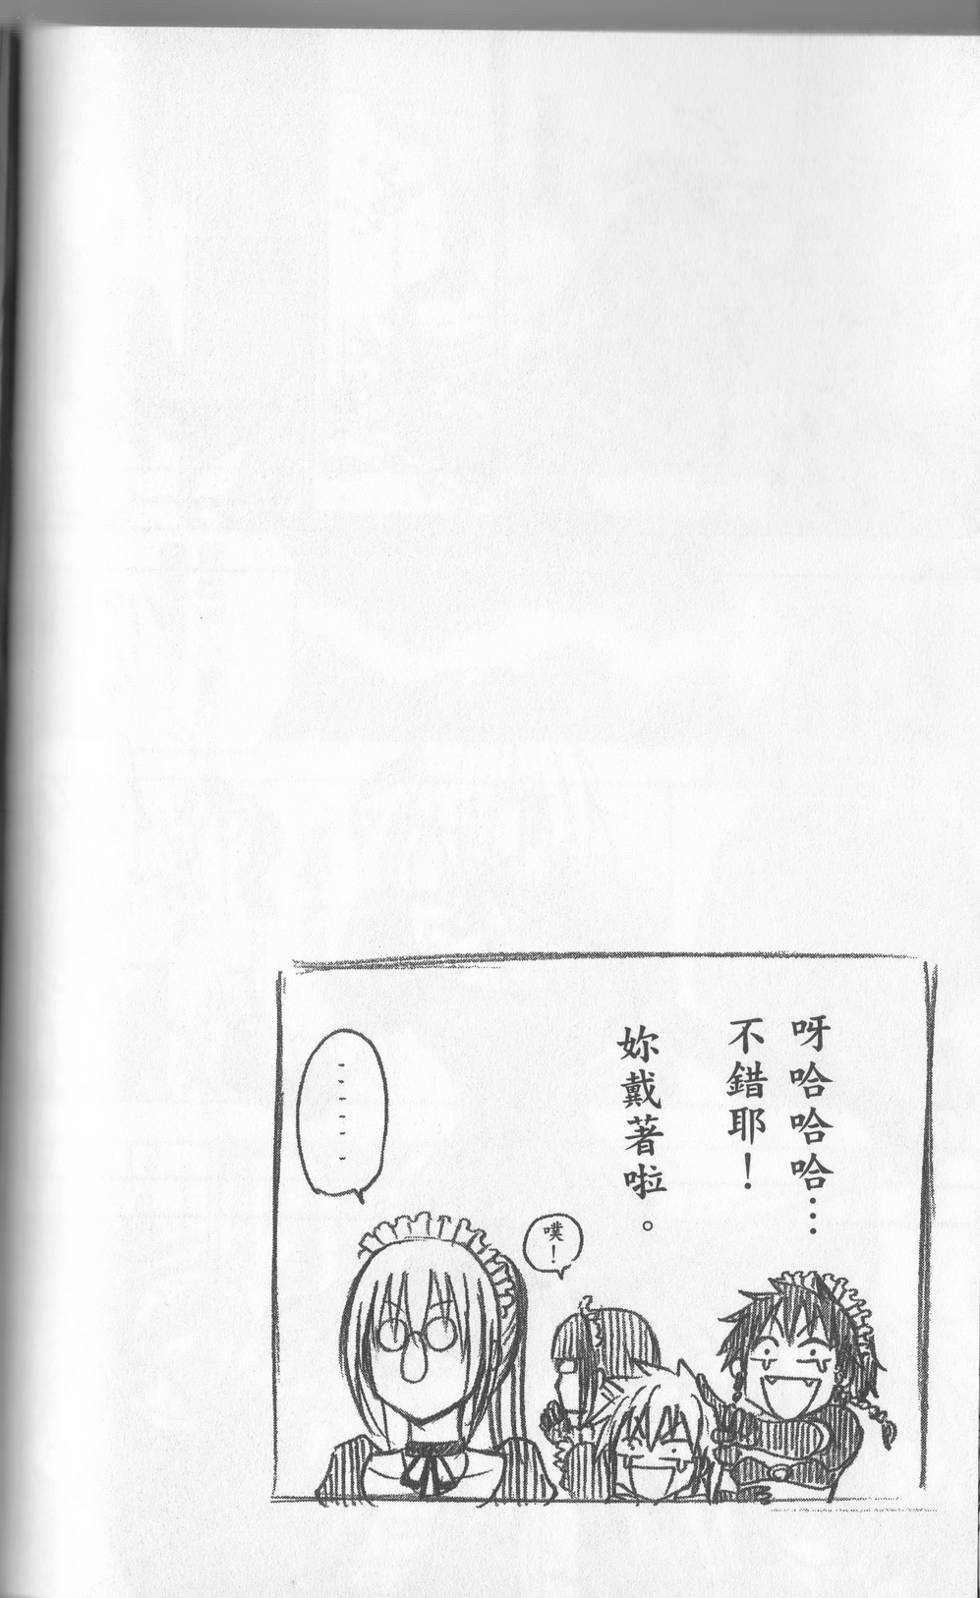 呀哈哈哈…
不錯耶！
妳戴著啦。
噗！
……